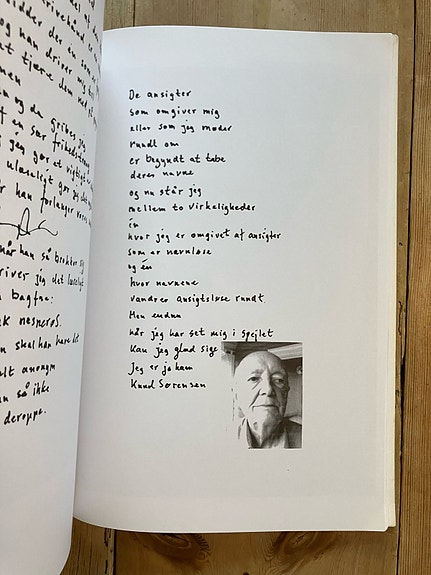 del af
er
sidder der en som
og han driver mig til
at tjære dem ned på
men
og de gribes jeg
en sær
jeg gør et vigtigt
ulæseligt gør
han forlanger
når han så brokker sig
river jeg det læseligt
bagfra:
nesnerøS.
skal han have det
alt anonym
så ikke
deroppe.
De ansigter
som omgiver mig
eller som jeg møder
rundt om
er begyndt at tabe
deres navne
og nu står jeg
mellem to virkeligheder
én
hvor jeg er omgivet af ansigter
som er navnløse
og én
hvor navnene
vandrer ansigtsløse rundt.
Men endnu
når jeg har set mig i spejlet
kan jeg glad sige
Jeg er jo ham
Knud Sørensen